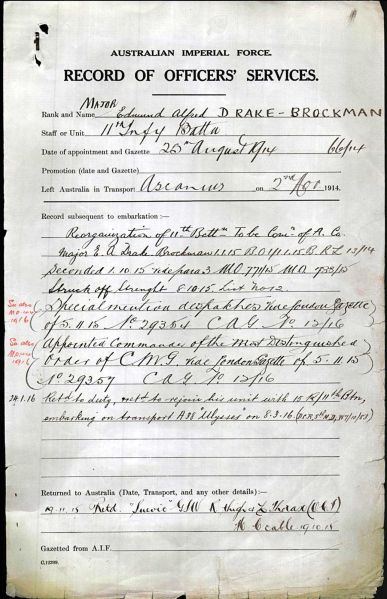 AUSTRALIAN IMPERIAL FORCE.
RECORD OF OFFICERS' SERVICES.
MAJOR
Rank and Name Edmund Alfred DRAKE-BROCKMAN
Staff or Unit 11th Infy Battn
Date of appointment and Gazette 25th August 1914 66/14
Promotion (date and Gazette)
Left Australia in Transport: Ascanius on 2nd Nov 1914.
Record subsequent to embarkation :—
Reorganization of 11th Battn To be Comr of A. Co.
Major E A Drake Brockman 1.1.15 B.O.1/1.15 B.R.L 13/14
Seconded 1.10.15 para 3 M.O. 771/15 M.O.
Struck off Strenght 8.10.15 List
Special mention despatches vide London Gazette
of 5.11.15 No 29354 C A G No 12/16
Appointed Commander of the Most Distinguished
Order of C.M.G. vide London Gazette of 5.11.15
No 29357 C A G No 12/16
24.1.16 Retd to duty, to rejoin his unit with 15 R/11th Btn,
embarking on transport A38 "Ulysses" on 8.3.16
Returned to Australia (Date, Transport, and any other details) :—
19.11.15 Retd. "Suevic" GSW
19.10.15
Gazetted from A.I.F.
C.12389.